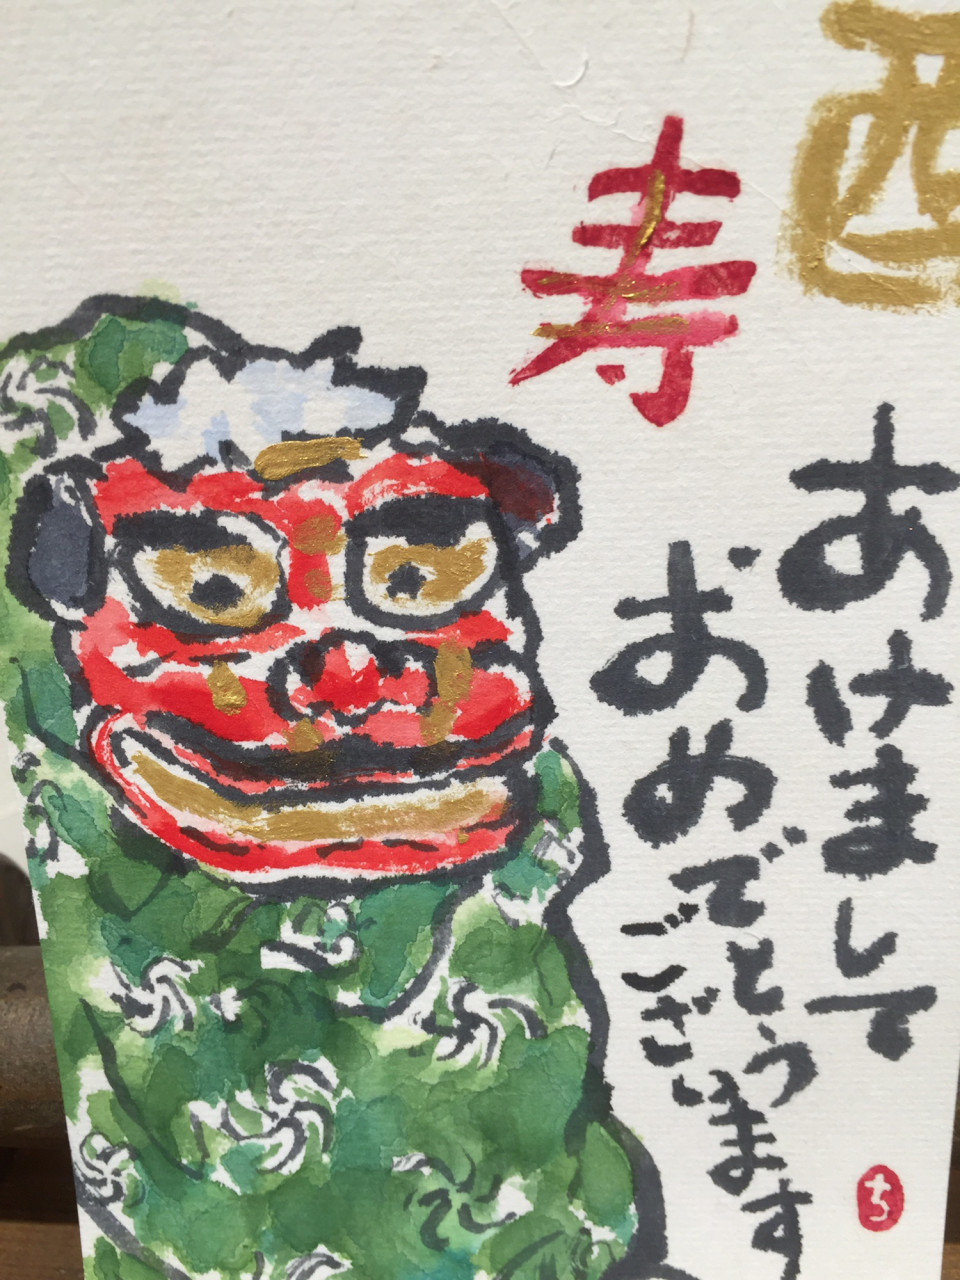 酉
寿
あけまして
おめでとう
ございます
ち